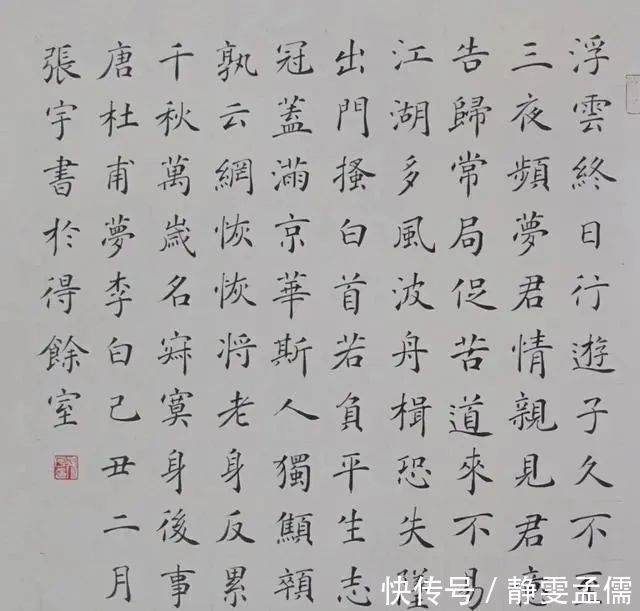 浮雲終日行遊子久不
三夜頻夢君情親見君意
告歸常局促苦道來不易
江湖多風波舟楫恐失墜
出門搔白首若負平生志
冠蓋滿京華斯人獨顦顇
孰云網恢恢將老身反累
千秋萬歲名寂寞身後事
唐杜甫夢李白己丑二月
張宇書於得餘室
快传号 / 静雯孟儒